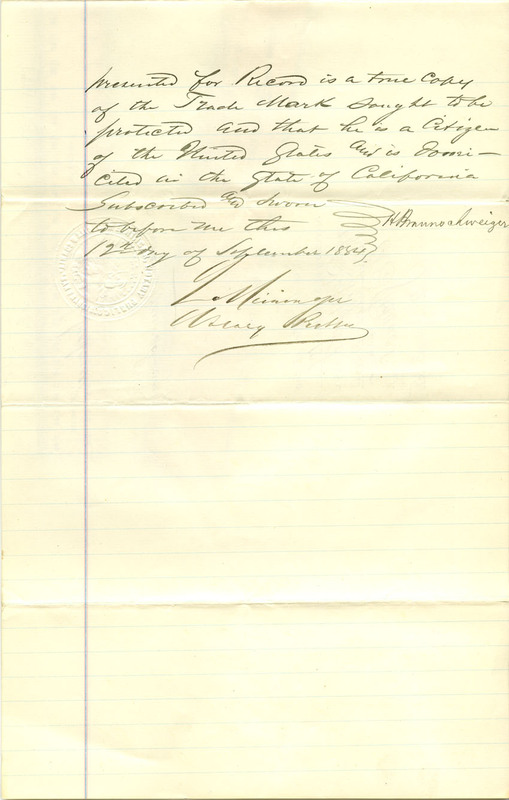 presented for Record is a true Copy
of the Trade Mark sought to be
protected and that he is a Citizen
of the United States and is Domi-
ciled in the State of California
Subscribed and Sworn
to before me this
H Braunschweiger
12th day of September 1884
Notary Public